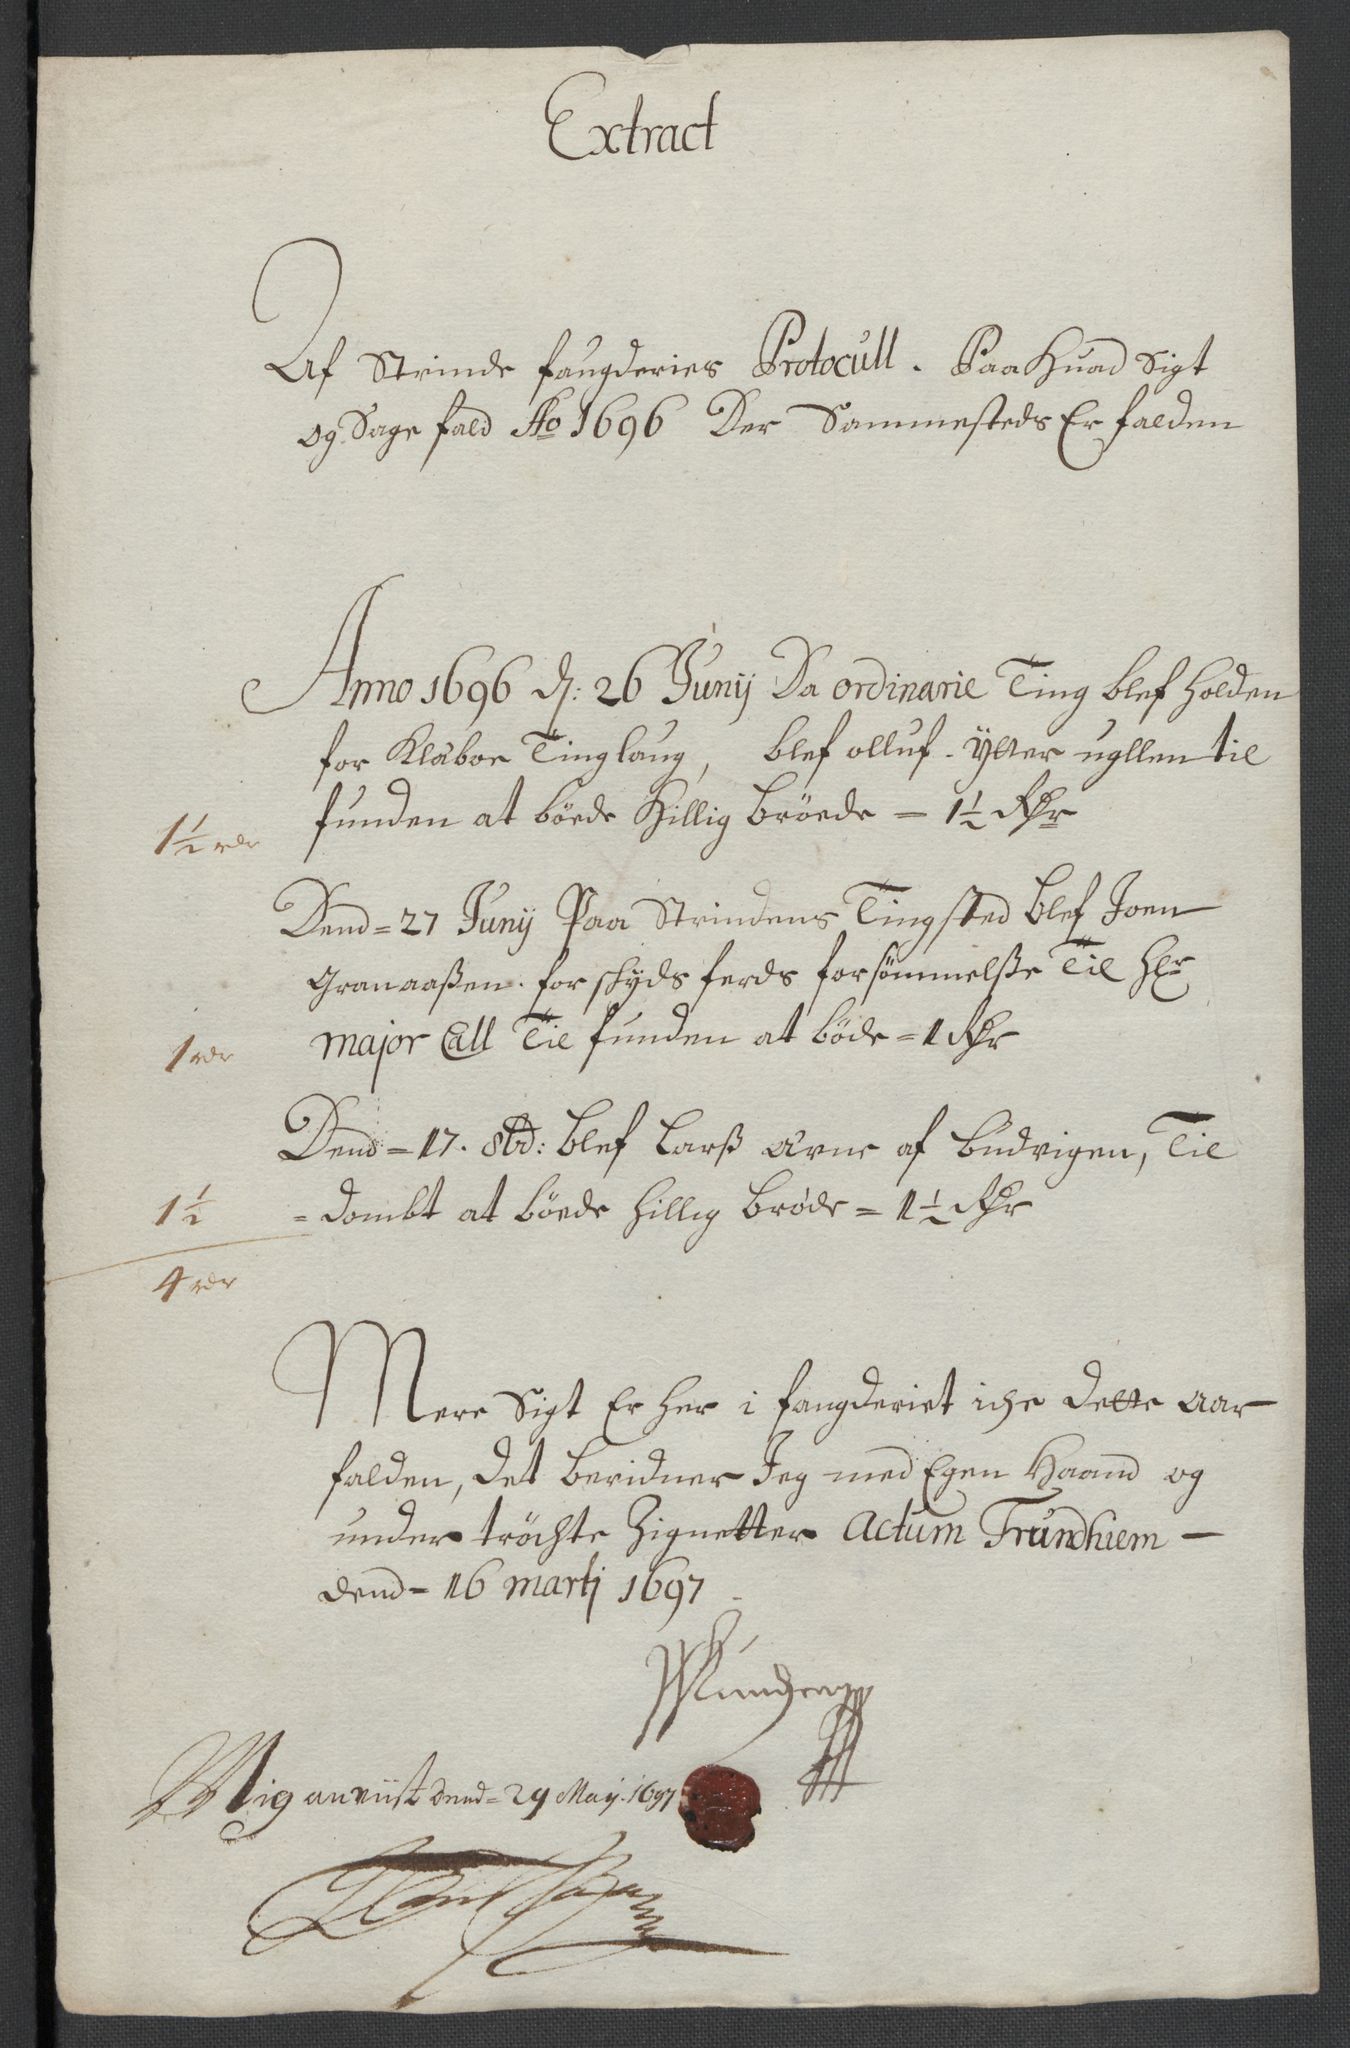 Extract
Af Strinde fougderies Protocull. Paa Huad Sigt
og Sage fald Ao 1696 Der Sammesteds Er falden
Anno 1696 d: 26 Junij Da ordinarie Ting blef holden
for Klæboe Tinglaug, blef olluf Ytter ugllen til
funden at böede Hillig bröede = 1½ Rdr
1½ rdr
Dend = 27 Junij Paa Strindens Tingsted blef Joen
Granaaßen. for skyds ferds forsömmelße Til Hr
major Call Til funden at böde = 1 Rdr
1 rdr
Dend = 17. 8br: blef Larß Arne af budvigen, Til
= dombt at böede hillig bröde = 1½ Rdr
1½
4 rdr
Mere Sigt Er her i fougderiet iche dette Aar
falden, det bevidner Jeg med Egen Haand og
under tröchte Zignetter Actum Trundhiem
dend = 16 martj 1697
Mig anviist dend = 29 Maij. 1697